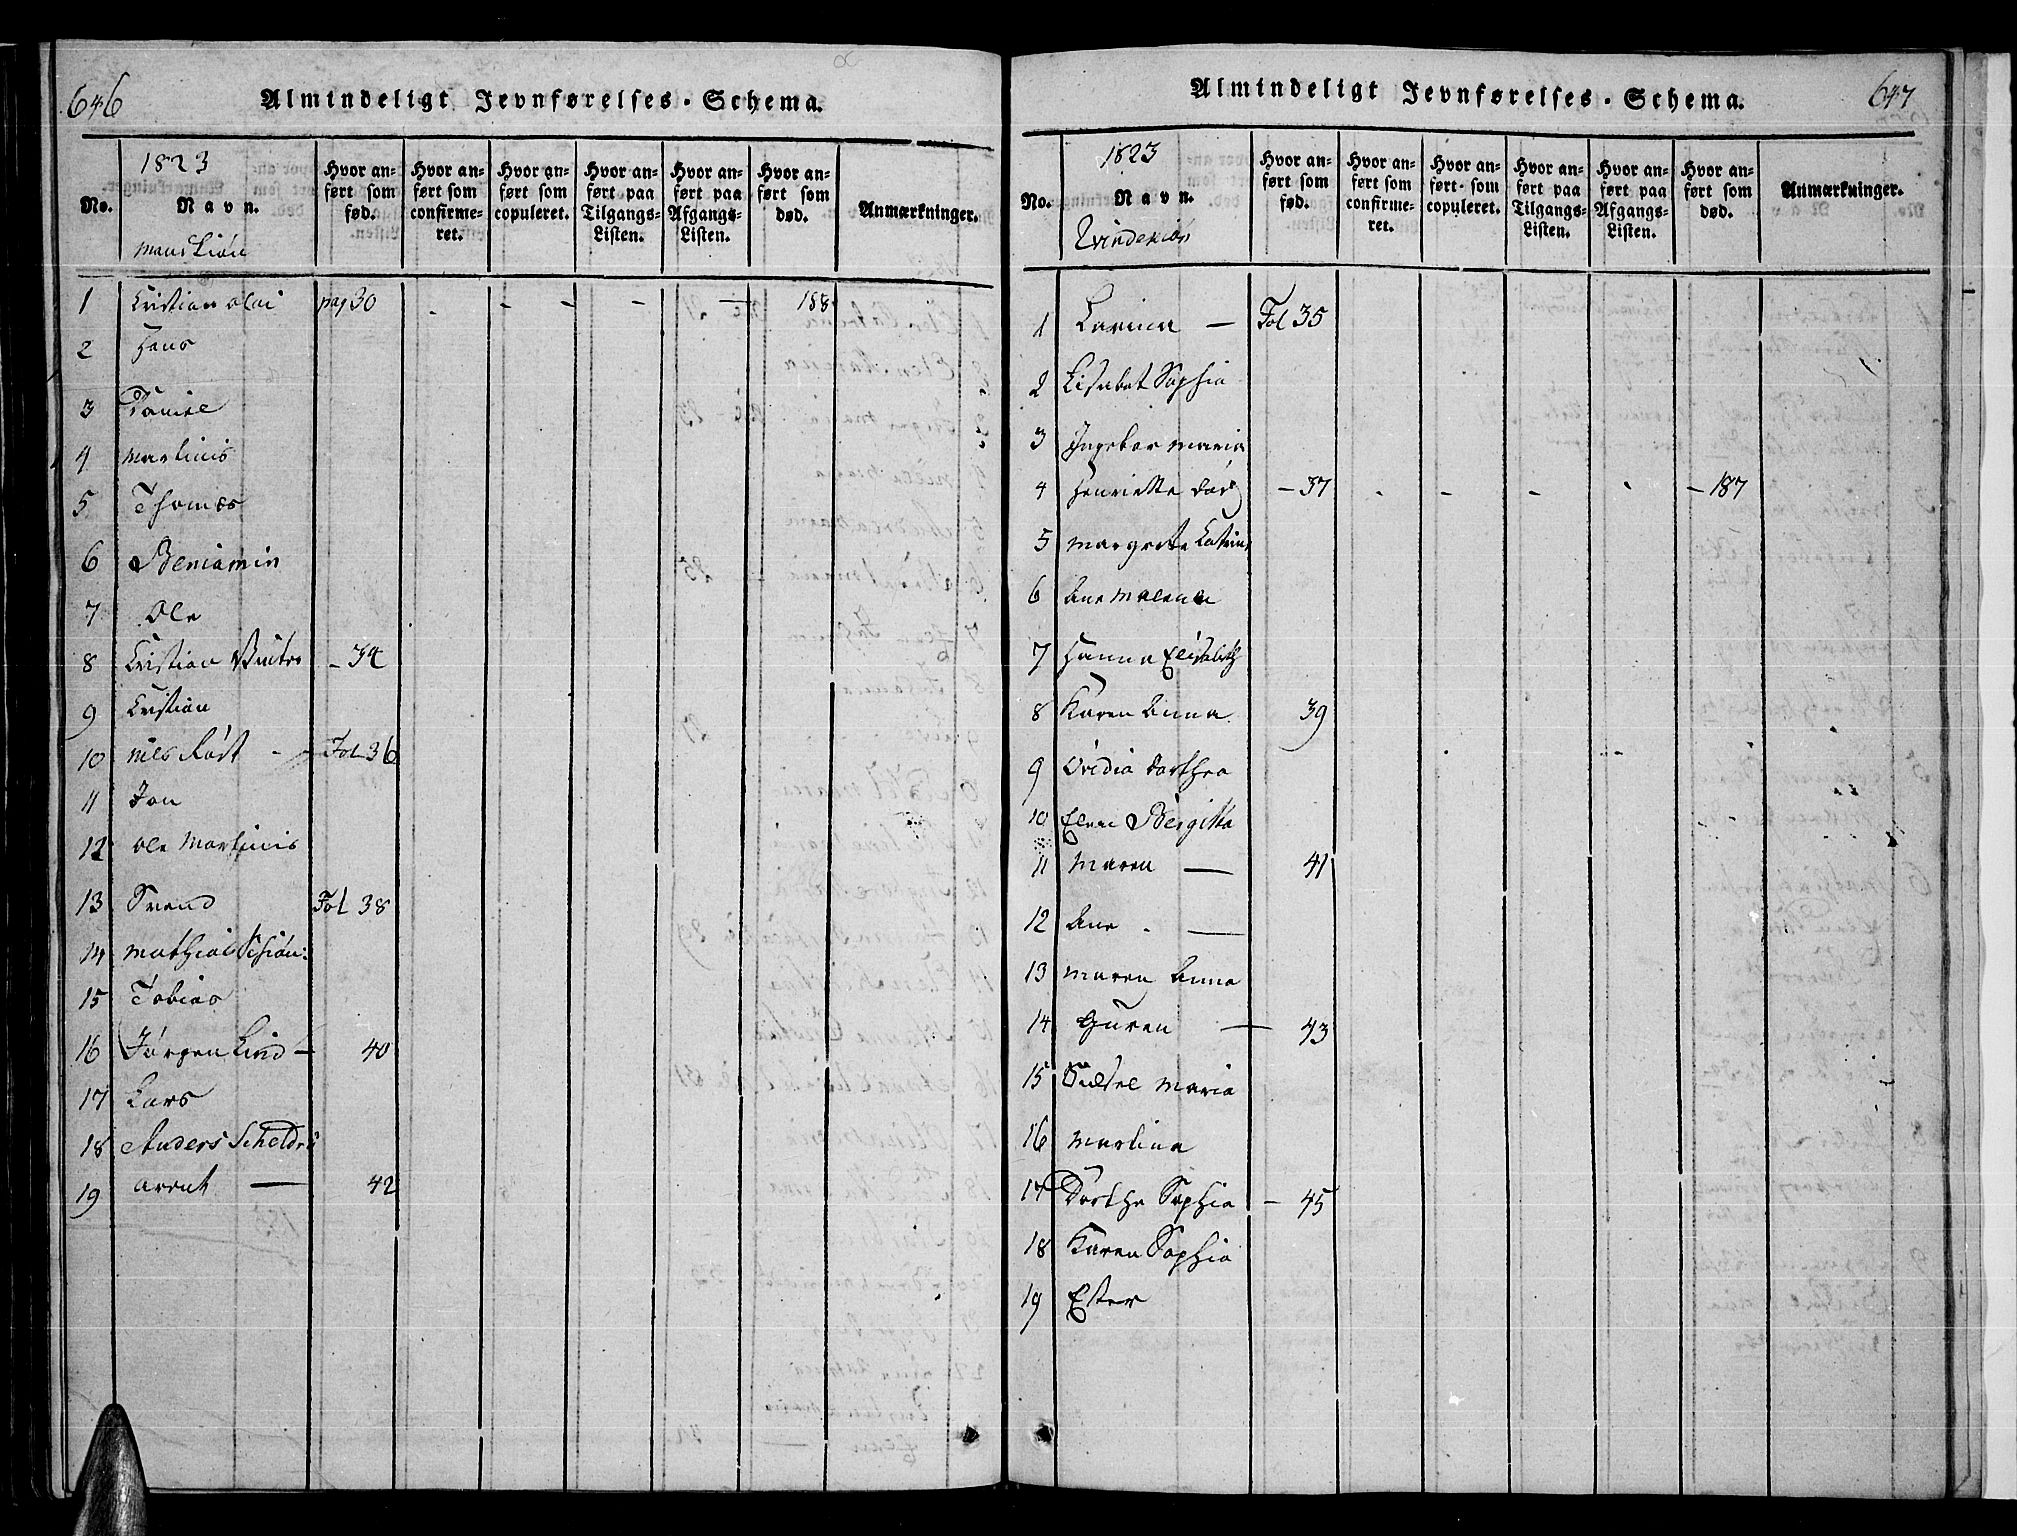 646
Almindeligt Jevnførelses-Schema.
No.
1823
Navn.
Hvor anført som fød.
Hvor anført som confirmeret.
Hvor anført som copuleret.
Hvor anført paa Tilgangs-Listen.
Hvor anført paa Afgangs-Listen.
Hvor anført som død.
Anmærkninger.
1 Cristian Olai pag 30 - - - - — 188
2 Hans
3 Daniel
4 Martinis
5 Thomas
6 Beniamin
7 Ole
8 Cristian - 34
9 Cristian
10 Nils Røst - Fol 36
11 Jon
12 Ole Martinis
13 Svend Fol 38
14 Mathias
15 Tobias
16 Jørgen Lind - 40
17 Lars
18 Anders Scheldru
19 Arent — 42
Almindeligt Jevnførelses-Schema.
647
No.
1823
Navn.
Qvindekiøn
Hvor anført som fød.
Hvor anført som confirmeret.
Hvor anført som copuleret.
Hvor anført paa Tilgangs-Listen.
Hvor anført paa Afgangs-Listen.
Hvor anført som død.
Anmærkninger.
1 — Fol 35
2 Lisabet Sophia
3 Ingebor Maria
4 Henriette Dor - 37 - - - - - 187
5 Margrete Catrin
6 Ane Malena
7 Hanna Elisabeth
8 Karen Anna 39
9 Ovidia Dorthea
10 Elen Bergitta
11 Maren — 41
12 Ane - —
13 Maren Anna
14 Guren — 43
15 Maria
16 Martina
17 Dorthe Sophia - 45
18 Karen Sophia
19 Ester